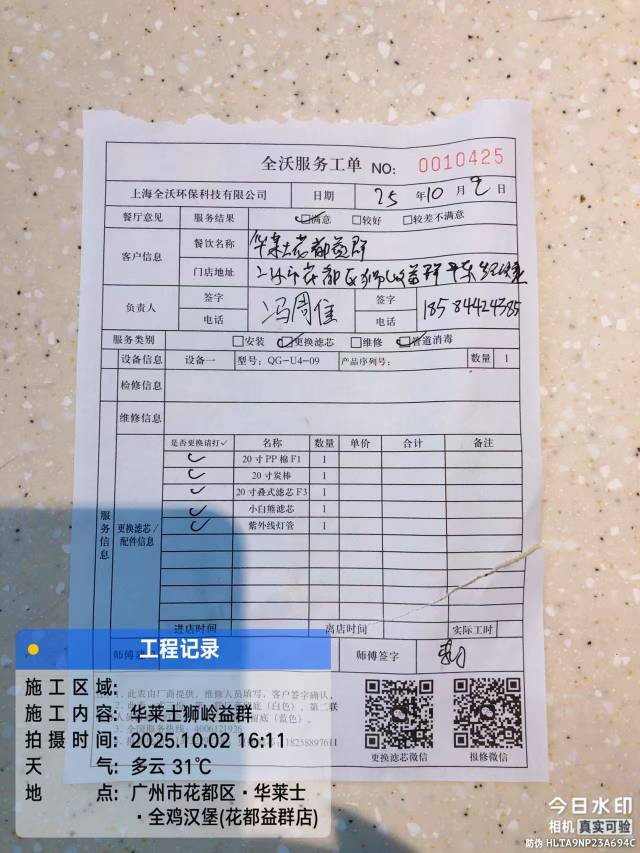 全沃服务工单 NO: 0010425
上海全沃环保科技有限公司 日期 25 年 10 月 2 日
餐厅意见 服务结果 ☑满意 □较好 □较差不满意
客户信息 餐饮名称 华莱士花都益群
门店地址 广州市花都区狮岭益群
负责人 签字 冯周佳 签字
电话 电话 18584424385
服务类别 □安装 ☑更换滤芯 □维修 ☑管道消毒
设备信息 设备一 型号: QG-U4-09 产品序列号: 数量 1
检修信息
维修信息
服务信息
更换滤芯/配件信息
是否更换请打✓ 名称 数量 单价 合计 备注
✓ 20寸PP棉F1 1
✓ 20寸炭棒 1
✓ 20寸叠式滤芯F3 1
✓ 小白熊滤芯 1
✓ 紫外线灯管 1
进店时间 离店时间 实际工时
师傅 师傅签字
1. 此表由厂商提供, 维修人员填写, 客户签字确认.
底(白色), 第二联
留底(蓝色).
全国服务热线: 4006121926
18258897611
更换滤芯微信 报修微信
工程记录
施工区域:
施工内容: 华莱士狮岭益群
拍摄时间: 2025.10.02 16:11
天气: 多云 31℃
地点: 广州市花都区·华莱士
·全鸡汉堡(花都益群店)
今日水印
相机 真实可验
防伪 HLTA9NP23A694C